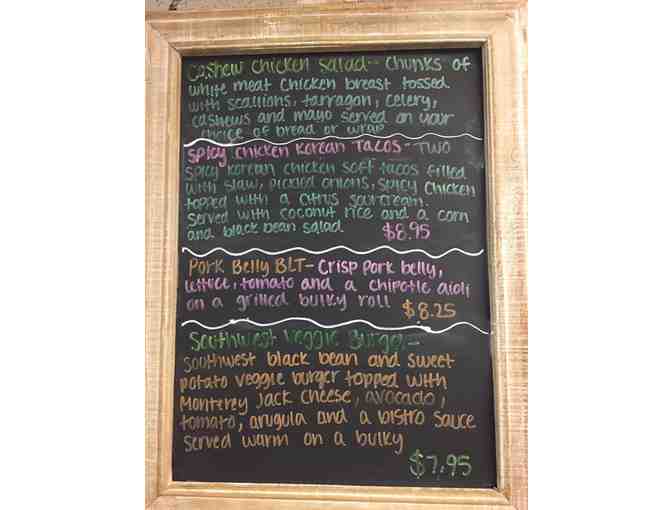 Cashew Chicken Salad-- Chunks of
white meat chicken breast tossed
with scallions, tarragon, celery,
cashews and mayo served on your
choice of bread or wrap
Spicy Chicken Korean Tacos - Two
spicy korean chicken soft tacos filled
with slaw, pickled onions, spicy chicken
topped with a citrus sourcream.
Served with coconut rice and a corn
and black bean salad $8.95
Pork Belly BLT - Crisp pork belly,
lettuce, tomato and a chipotle aioli
on a grilled bulky roll $8.25
Southwest Veggie Burger -
Southwest black bean and sweet
potato veggie burger topped with
Monterey Jack cheese, avocado,
tomato, arugula and a bistro sauce
served warm on a bulky
$7.95